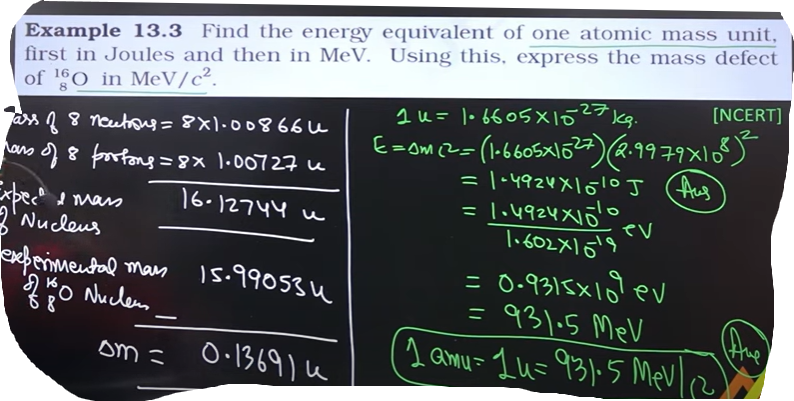 Example 13.3 Find the energy equivalent of one atomic mass unit,
first in Joules and then in MeV. Using this, express the mass defect
of ¹⁶₈O in MeV/c².
ass of 8 neutrons = 8×1.00866u
mass of 8 protons = 8× 1.00727 u
Expec d mass 16.12744 u
of Nucleus
experimental mass 15.99053u
of ¹⁶₈O Nucleus
Δm = 0.13691 u
1u = 1.6605×10⁻²⁷ kg. [NCERT]
E = Δmc² = (1.6605×10⁻²⁷)(2.9979×10⁸)²
= 1.4924×10⁻¹⁰ J Ans
= 1.4924×10⁻¹⁰ / 1.602×10⁻¹⁹ eV
= 0.9315×10⁹ eV
= 931.5 MeV
1 amu = 1u = 931.5 MeV/c² Ans